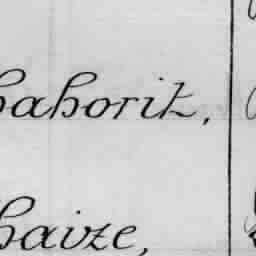 hahoritz,
haize,